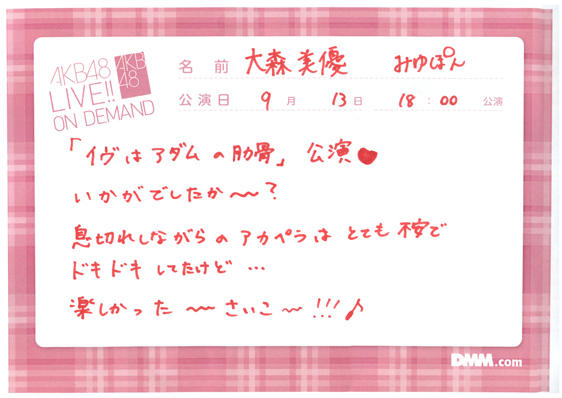 AKB48
LIVE!!
ON DEMAND
AKB
48
名前 大森美優 みゆぽん
公演日 9月 13日 18:00 公演
「イヴはアダムの肋骨」 公演♥
いかがでしたか〜?
息切れしながらのアカペラは とても 不安で
ドキドキしてたけど…
楽しかった〜〜さいこ〜!!!♪
DMM.com